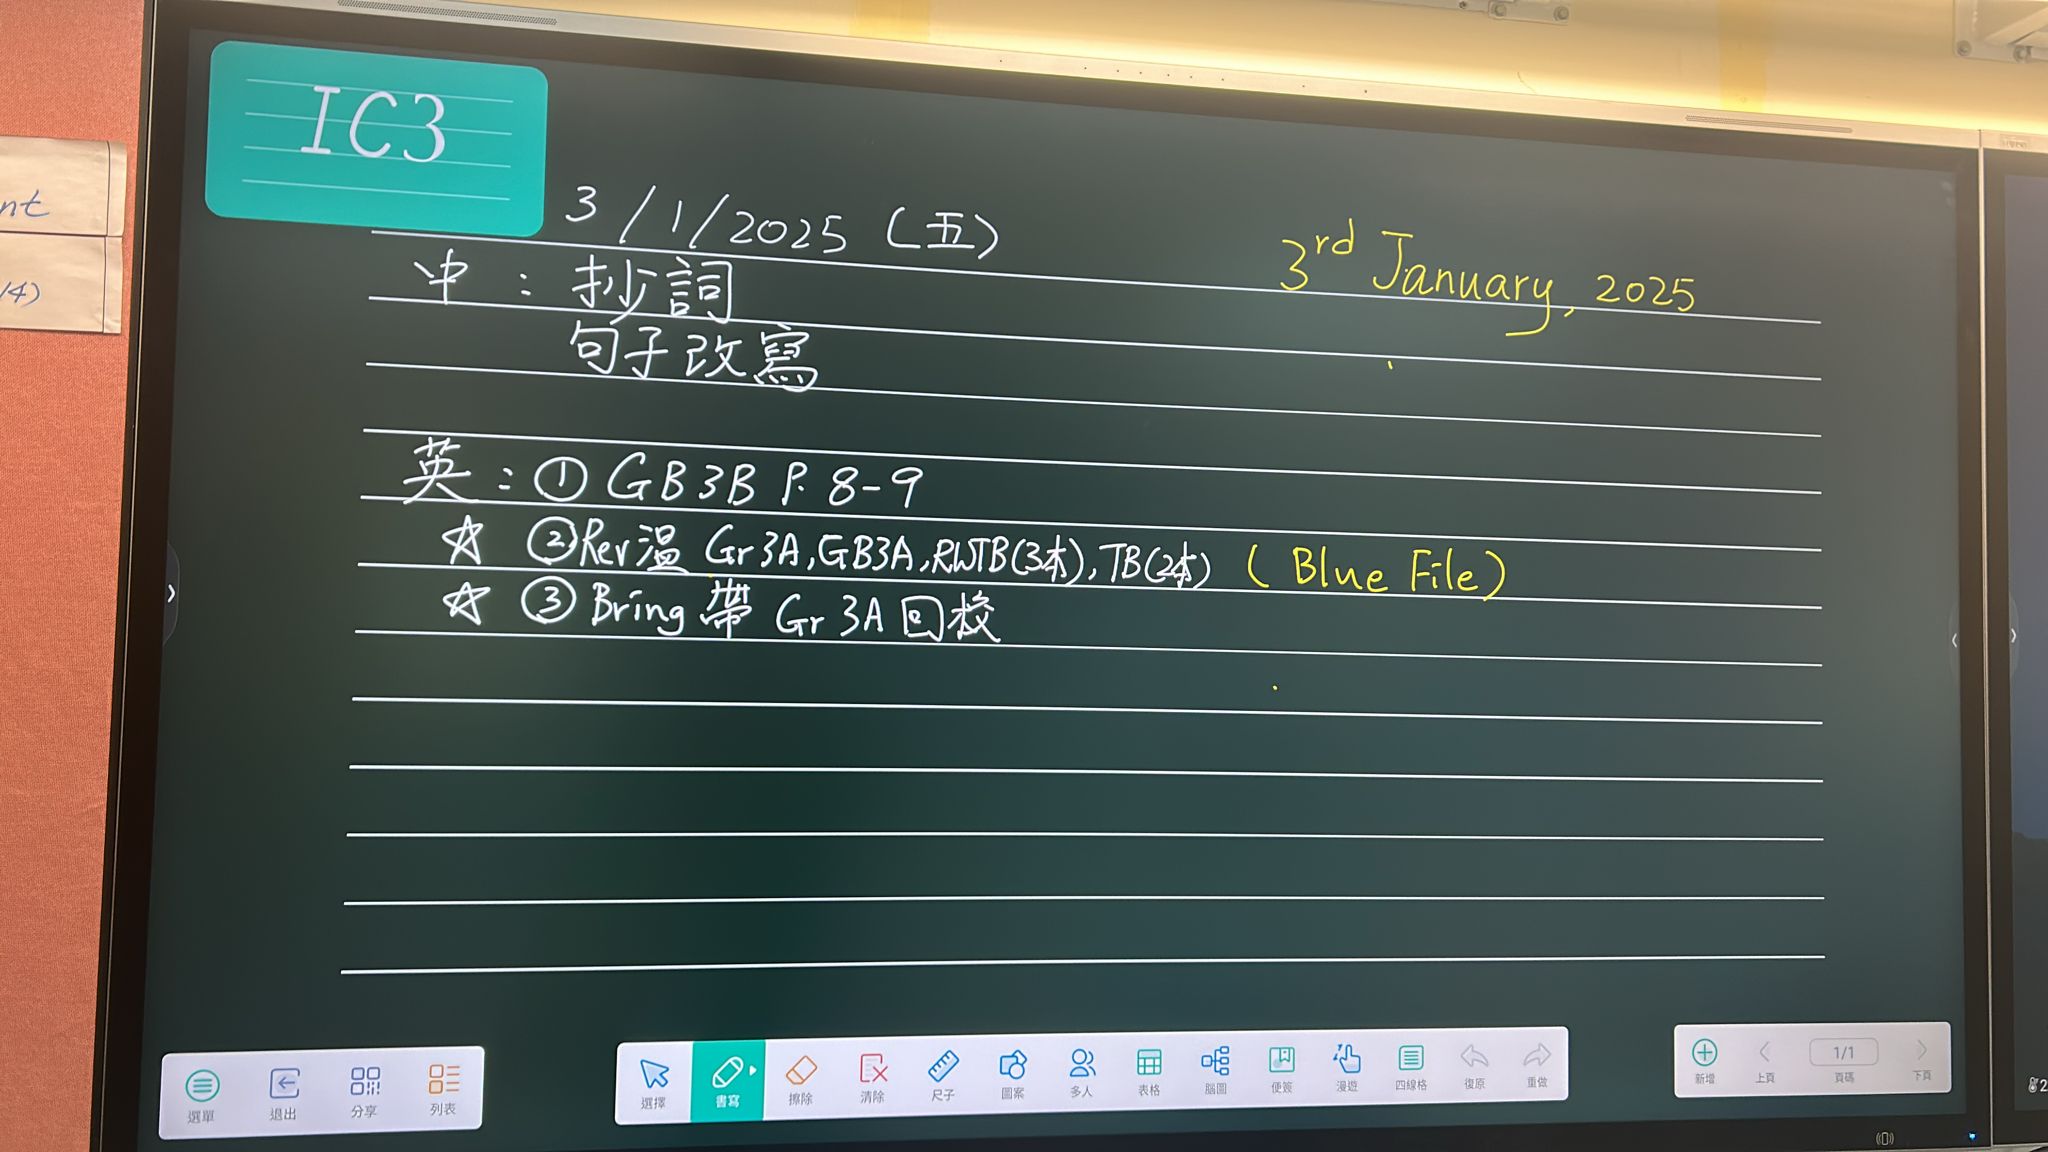 nt
14)
IC3
3/1/2025 (五)
3rd January, 2025
中：抄詞
句子改寫
英：① GB3B P. 8-9
☆ ② Rev溫 Gr3A, GB3A, RWTB(3本), TB(2本) (Blue File)
☆ ③ Bring 帶 Gr 3A 回校
選單 退出 分享 列表
選擇 書寫 擦除 清除 尺子 圖案 多人 表格 腦圖 便簽 漫遊 四線格 復原 重做
新增 上頁 1/1 頁碼 下頁